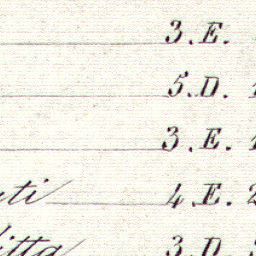 3.E.
5.D. 1
3.E. 1
ti 4.E. 2
itta 3.D.